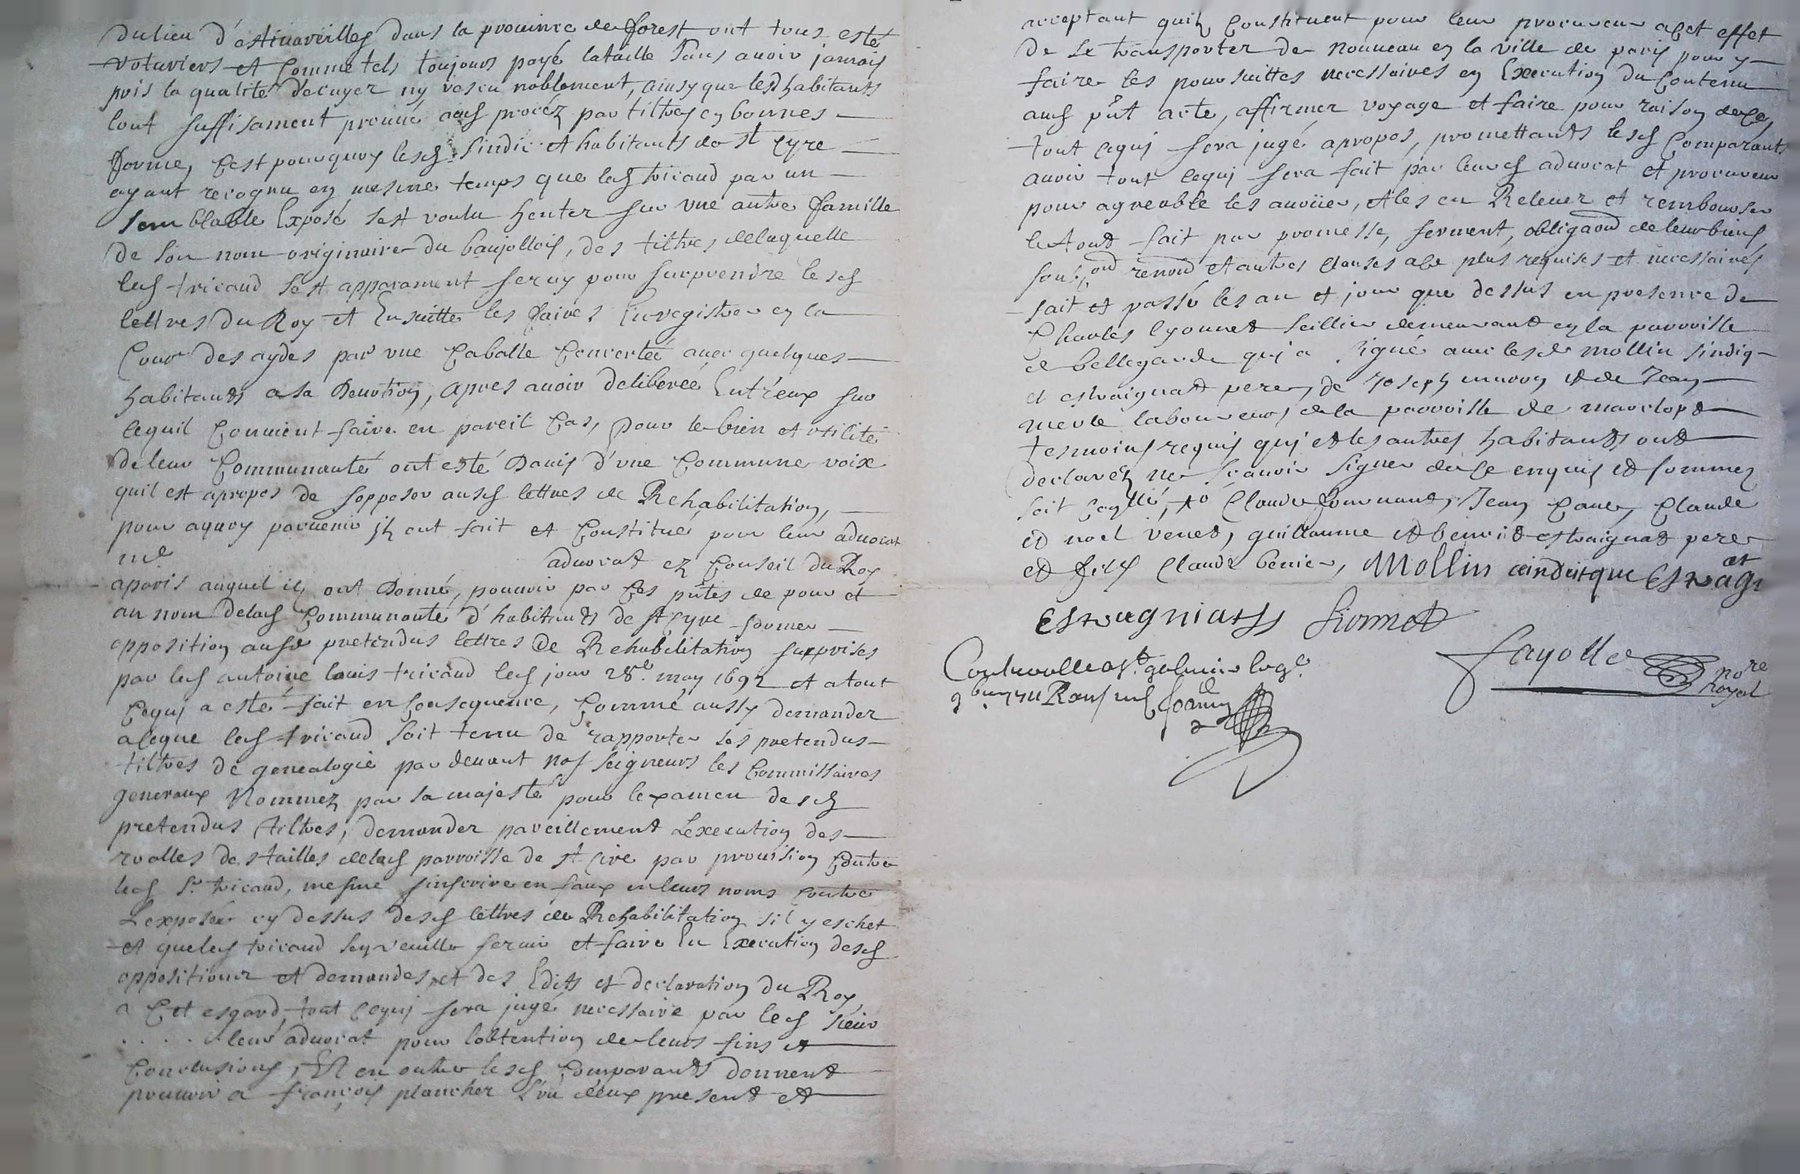 du lieu d'estivareilles dans la province de forest ont tous esté
roturiers et comme tels toujours payé la taille sans avoir jamais
pris la qualité d'ecuyer ny vescu noblement, ainsy que lesd habitants
tout suffisament prouvé aud procez par tiltres en bonnes
forme, c'est pourquoy lesd sindic et habitants de st cyre
ayant recognu en mesme temps que led tricaud par un
semblable exposé sest voulu henter sur une autre famille
de son nom originaire du baujollois, des tiltres de laquelle
led tricaud s'est apparament servy pour surprendre lesd
lettres du Roy et ensuitte les faires enregistrer en la
Cour des aydes par une caballe concertée avec quelques
habitants a sa devotion, apres avoir deliberée entreux sur
ce quil convient faire en pareil cas, pour le bien et utilité
de leur communauté ont esté davis d'une commune voix
quil est apropos de sopposer ausd lettres de Rehabilitation,
pour aquoy parvenir ils ont fait et constitué pour leur advocat
me advocat ez conseil du Roy
aparis auquel ils ont donné, pouvoir par ces pntes de pour et
au nom delad communauté d'habitants de st cyre former
opposition ausd pretendus lettres de Rehabilitation surprises
par led antoine louis tricaud led jour 28e may 1692 et atout
cequi a esté fait en consequence, comme aussy demander
aceque led tricaud soit tenu de rapporter ses pretendus
tiltres de genealogie par devant nosseigneurs les commissaires
generaux nommez par sa majesté pour lexamen desd
pretendus tiltres, demander pareillement Lexecution des
roolles de stailles delad parroisse de st cire par provision contre
led sr tricaud, mesme sinscrire en faux en leurs noms contre
Lexposée cy dessus desd lettres de Rehabilitation sil y eschet
et queled tricaud sen veuille servir et faire en execution desd
oppositions et demandes, et des Edits et declaration du Roy
a cet esgard, tout cequi sera jugé necessaire par led sieur
. . . . . leur advocat pour lobtention de leurs fins et
conclusions, Et en outre lesd comparants donnent
pouvoir a françois plancher l'un d'eux present et
acceptant quils constituent pour leur procureur acet effet
de se transporter de nouveau en la ville de paris pour y
faire les poursuittes necessaires en execution du contenu
aud pnt acte, affirmer voyage et faire pour raison dece,
tout cequi sera jugé apropos, promettants lesd comparants
avoir tout cequi sera fait par leursd advocat et procureur
pour agreable les avoüer, et les en Relever et rembourser
le tout fait par promesse, serment, obligaon de leur biens,
soubson renoon et autres clauses ace plus requises et necessaires
fait et passé les an et jour que dessus en presence de
Charles lyonnet seillier demeurant en la parroisse
de bellegarde qui a signé avec lesd mollin sindiq
et estraignat pere, de Joseph et de Jean
laboureurs de la parroisse de
tesmoins requis qui et les autres habitants ont
declarez ne scavoir signer dece enquis et sommez
soit Claude Jean Claude
et noel venet, guillaume et benoit estraignat pere
et fils Claude benier, Mollin cindicque Estragnat
Estragniatss Lionnet
Controllé a st galmier
fayolle
nore
Royal